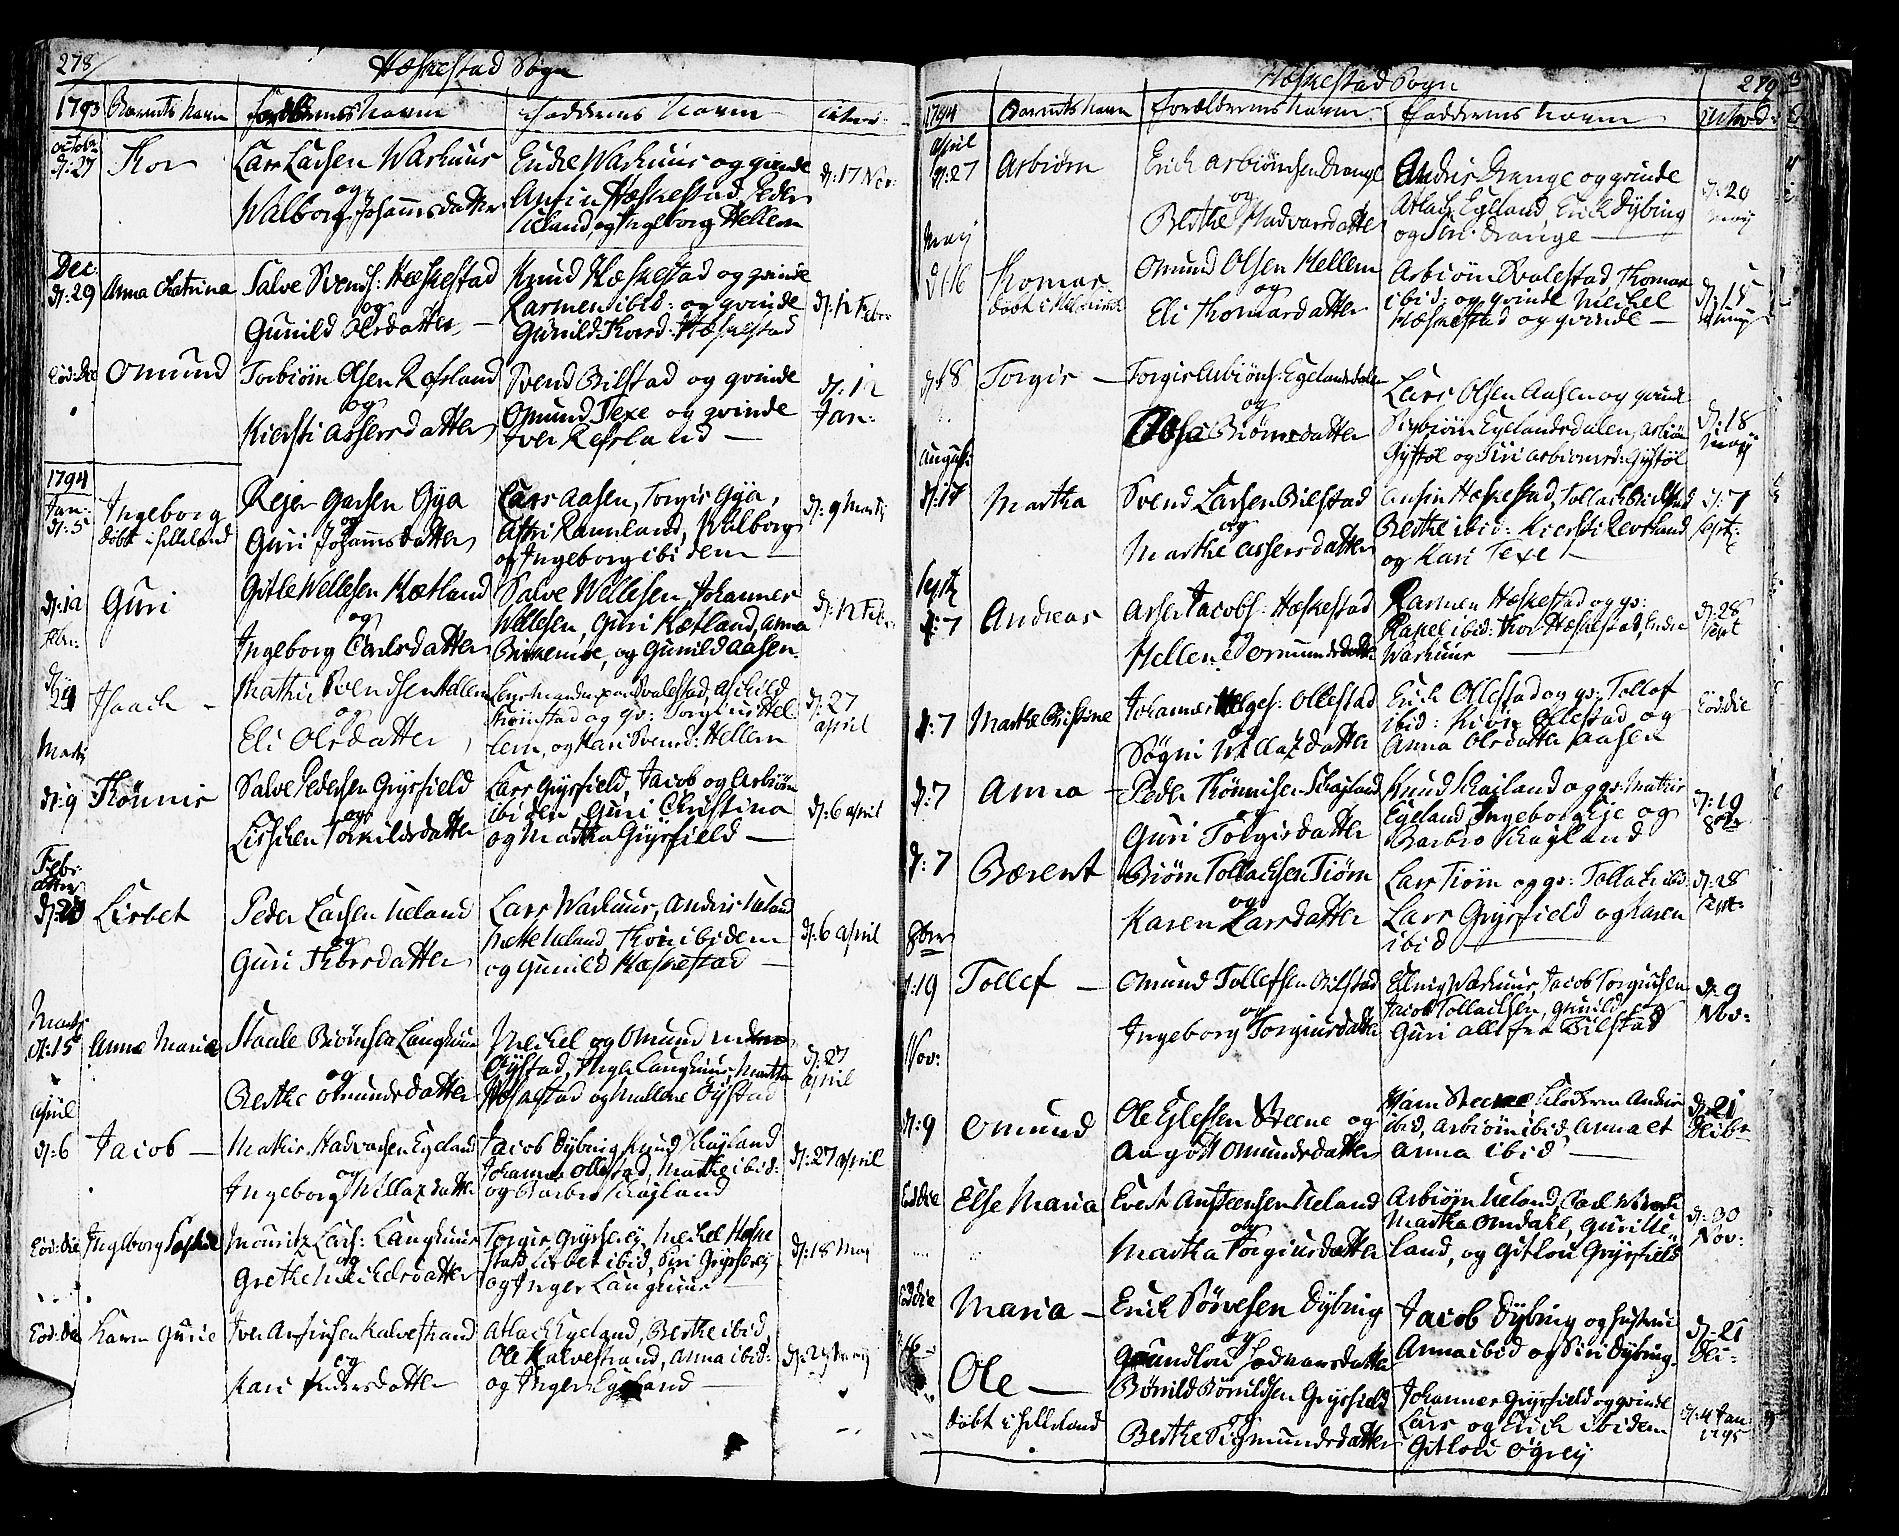 278/
Hæskestad Sogn
1793 Barnets Navn
Faddernes Navn
octobr
d: 27 Thor
Lars Larsen Waskuus
og
Walborg Johannsdatter
Endre Waskuus og qvinde
Ansin Hæskestad, Peder
Ueland, og Ingeborg Hellem
d: 17 Nov:
Dec:
d: 29 Anna Catrina
Salve Svends: Hæskestad
og
Gunild Olsdatter
Knud Hæskestad og qvinde
Rasmen ibid: og qvinde
Gunild Thorsd: Hæskestad
d: 12 Febr
Eod: die Omund
Torbiörn Olsen Refsland
og
Kiersti Assersdatter
Svend Bilstad og qvinde
Omund Texe og qvinde
Iver Refsland
d: 12
Jan:
1794
Jan:
d: 5
Ingeborg
döbt i Helleland
Rejer Garsen Gya
og
Guri Johannsdatter
Lars Aasen, Torgis Gya,
Attri Ramsland, Walborg
og Ingeborg ibidem
d: 9 Marti
d: 12
Febr:
Guri
Gitle Wellesen Kætland
og
Ingeborg Carlsdatter
Salve Wellesen, Johannes
Wellesen, Guri Kætland, Anna
Birkemoe, og Gunild Aasen
d: 12 Feb
24 Isaach
Mathis Svendsen Hellem
og
Eli Olsdatter
og qv: Torgius Hel-
lem, og Kari Svensd: Hellem
d: 27
april
Marti
d: 9 Thönnis
Salve Pedersen Grysfield
og
Lisbeth Torkildsdatter
Lars Grysfield, Jacob og Asbiörn
ibidem, Guri Christina
og Martha Grysfield
d: 6 april
Febr:
d: 23 Lisbet
Peder Larsen Ueland
og
Guri Thorsdatter
Lars Waskuus, Anders Ueland
Mette Ueland, Thor ibidem
og Gunild Hæskestad
d: 6 april
Marti
d: 15 Anne Maria
Staale Biörnsen Laugkuus
og
Berthe Omundsdatter
Michel og Omund
Öystad, Inger Laugkuus, Martha
Hæskestad og Mallene Öystad
d: 27
april
april
d: 6 Jacob
Mathis Hadvarsen Egeland
og
Ingeborg Nillasdatter
Jacob Dybing, Knud Skayland
Johannes Ollestad, Marthe ibid:
og Barbro Skayland
d: 27 april
Eod: die Ingeborg Sophie
Mouritz Lars: Laugkuus
og
Grethe Michelsdatter
Torgis Grysserej, Michel Hæske-
stad, Lisbet ibid, Siri Grysserej
og Inger Laugkuus
d: 18 Maj
Eod: die Karen Gurie
Iver Ansinsen Kalvestrand
og
Kari Andersdatter
Atlach Egeland, Berthe ibid,
Ole Kalvestrand, Anna ibid:
og Inger Egeland
Hæskestad Sogn
279
1794
Barnets Navn
Forældrenes Navn
Faddernes Navn
april
d: 27 Asbiörn
Erich Asbiörnsen Drange
og
Berthe Hadvarsdatter
Andris Drange og qvinde
Atlach Egeland, Erich Dybing
og Siri Drange
d: 29
Maij
Maij
d: 16 Thomas
Omund Olsen Hellem
og
Eli Thomasdatter
Asbiörn Qvalestad, Thomas
ibid: og qvinde Michel
Hæskestad og qvinde
d: 15
d: 18 Torgis
Torgis Asbiörns: Egelandsdalen
og
Aasa Biörnsdatter
Lars Olsen Aasen og qvinde
Sigbiörn Egelandsdalen, Asbiörn
Gystöl og Siri Asbiörnsd: Gystöl
d: 18
Maij
August:
d: 17 Martha
Svend Larsen Bilstad
og
Marthe Assersdatter
Ansin Hæskestad, Tollach Bilstad
Berthe ibid: Kiersti Refsland
og Kari Texe
d: 7
Sept:
Septr
d: 7 Andreas
Asser Jacobs: Hæskestad
Hellene Domundsdatter
Rasmen Hæskestad og qv:
Rakel ibid: Thor Hæskestad, Endre
Waskuus
d: 28
Sept
d: 7 Marthe Christine
Johannes Helges: Ollestad
og
Sögni Nillasdatter
Erich Ollestad og qv: Tollef
ibid: Ollestad og
Anna Olsdatter Aasen
Eod: die
d: 7 Anna
Peder Thönnisen Skajland
Guri Torgisdatter
Knud Skajland og qv: Mathis
Egeland, Ingeborg Eje og
Barbro Skayland
d: 19
8br
d: 7 Bærent
Biörn Tollachsen Tiörn
og
Karen Larsdatter
Lars Tiörn og qv: Tollach ibid:
Lars Grysfield og Karen
ibid
d: 28
Sept:
8br
d: 19 Tollef
Omund Tollefsen Bilstad
og
Ingeborg Torgiusdatter
Elling Waskuus, Jacob Torgiusen
Jacob Tollachsen, Gunild og
Guri alle fra Bilstad
d: 9
Nov:
Nov:
d: 9 Omund
Ole Eglessen Steene og
Aagött Omundsdatter
ibid, Asbiörn ibid, Anna et
Anna ibid
d: 21
Eod: die Else Maria
Evert Anstensen Ueland
og
Martha Torgiusdatter
Asbiörn Ueland,
Martha Omdahl, Guri Ue-
land, og Gitlou Grysfield
d: 30
Nov:
Eod: die Maria
Erich Sörvesen Dybing
og
Gundlou Hadvarsdatter
Jacob Dybing og hustrue
Anna ibid og Siri Dybing
d: 21
Ole
döbt i Helleland
Börild Börildsen Grysfield
og
Berthe Sigmundsdatter
Johannes Grysfield og qvinde
Lars og Erich ibidem
Gitlou Ögrej
d: 4 Jan
1795